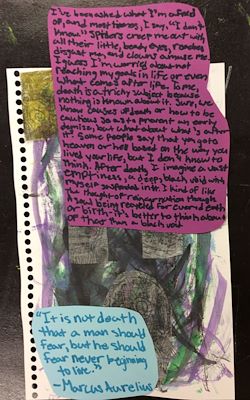 I've been asked what I'm afraid
of, and most times, I say, "I don't
know." Spiders creep me out with
all their little, beady eyes, roaches
disgust me, and clowns amuse me.
I guess I'm worried about not
reaching my goals in life or even
what comes after life. To me,
death is a tricky subject because
nothing is known about it. Sure, we
know causes of death or how to be
cautious so as to prevent an early
demise, but what about what's after
it? Some people say that you go to
heaven or hell based on the way you
lived your life, but I don't know to
think. After death, I imagine a vast
emptiness, a deep, black void with
myself suspended in it. I kind of like
the thought of reincarnation though
A soul being recycled for every death
or birth-it's better to think about
of that than a black void.
"It is not death
that a man should
fear, but he should
fear never beginning
to live."
-Marcus Aurelius